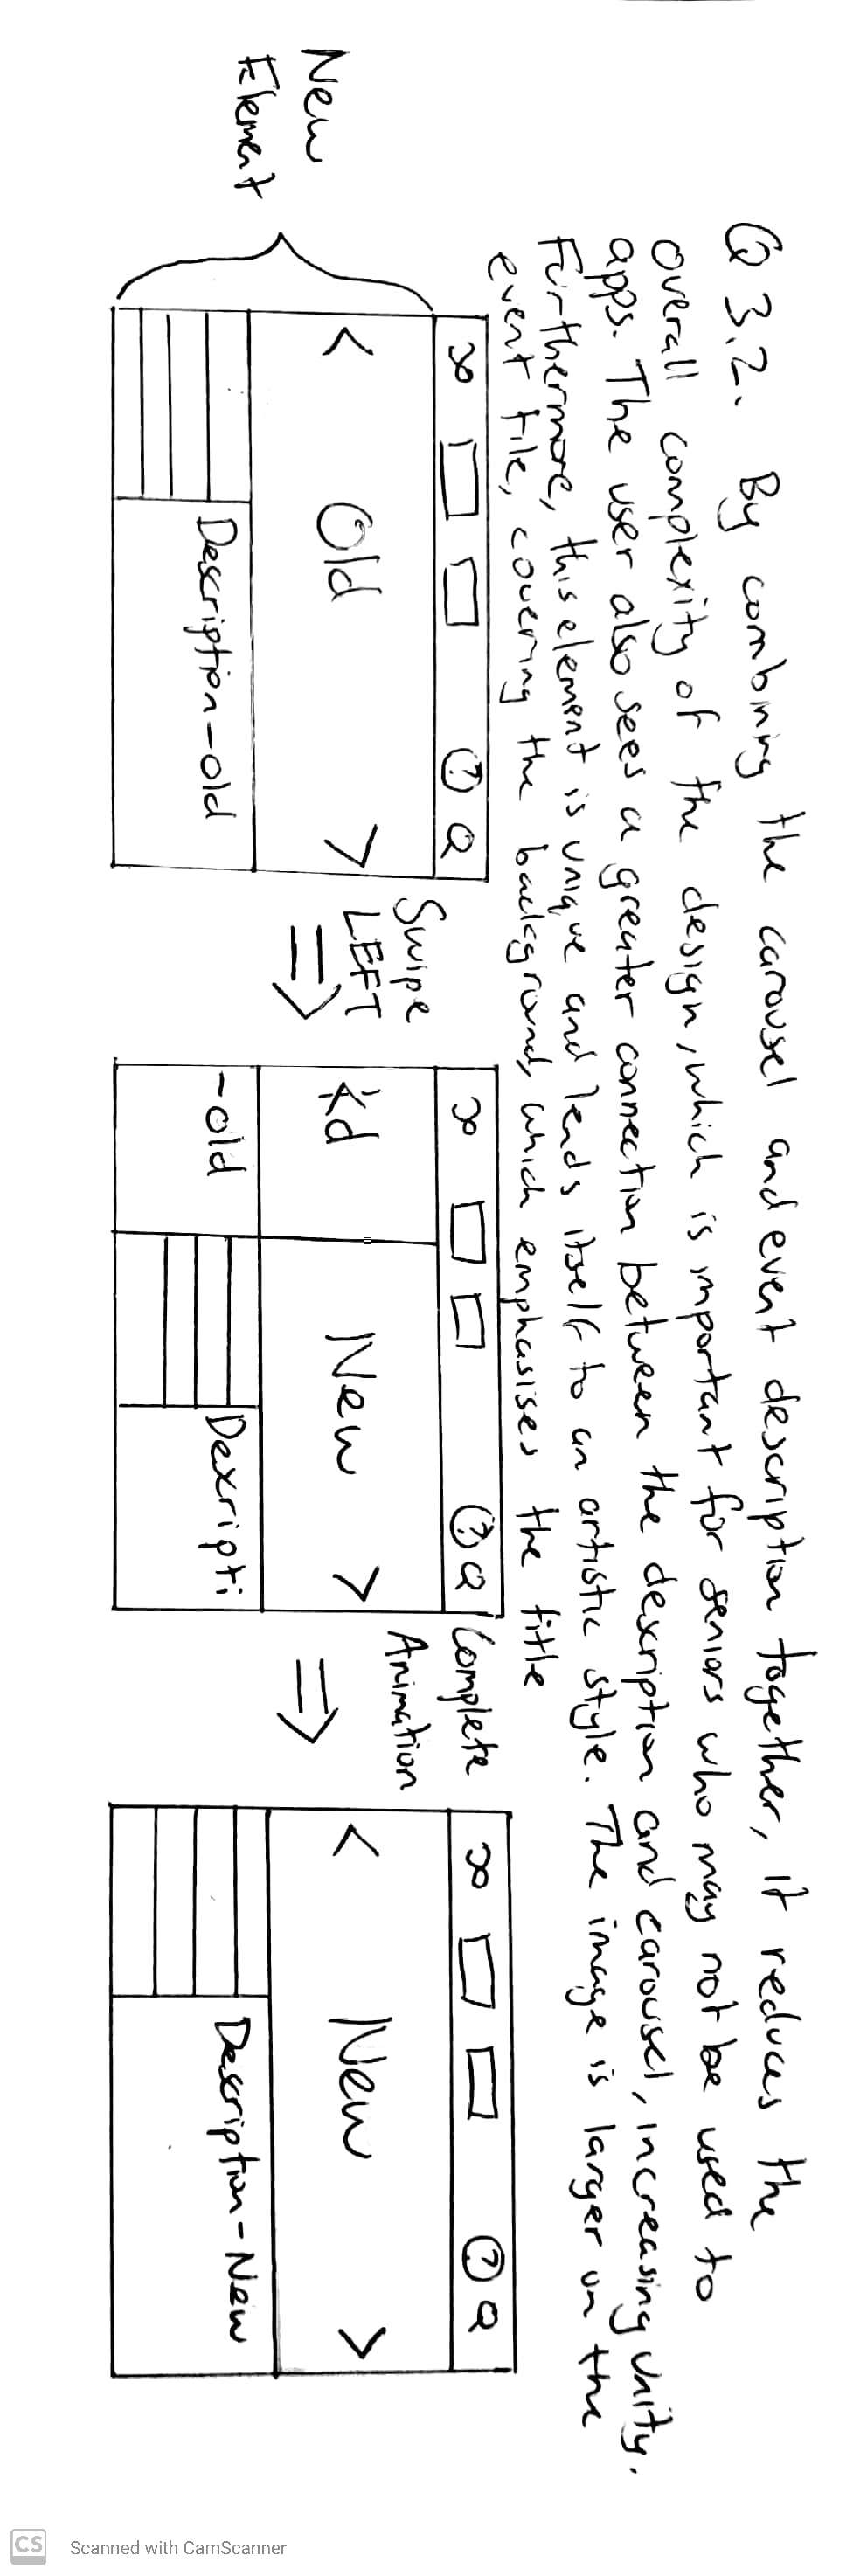 Q3.2. By combining the carousel and event description together, it reduces the
overall complexity of the design, which is important for seniors who may not be used to
apps. The user also sees a greater connection between the description and carousel, increasing unity.
Furthermore, this element is unique and lends itself to an artistic style. The image is larger on the
event tile, covering the background, which emphasises the title
New
Element
?
<
Old
>
Description-old
Swipe
LEFT
?
ld
New
>
-old
Dexcripti
Complete
Animation
?
<
New
>
Description-New
CS Scanned with CamScanner